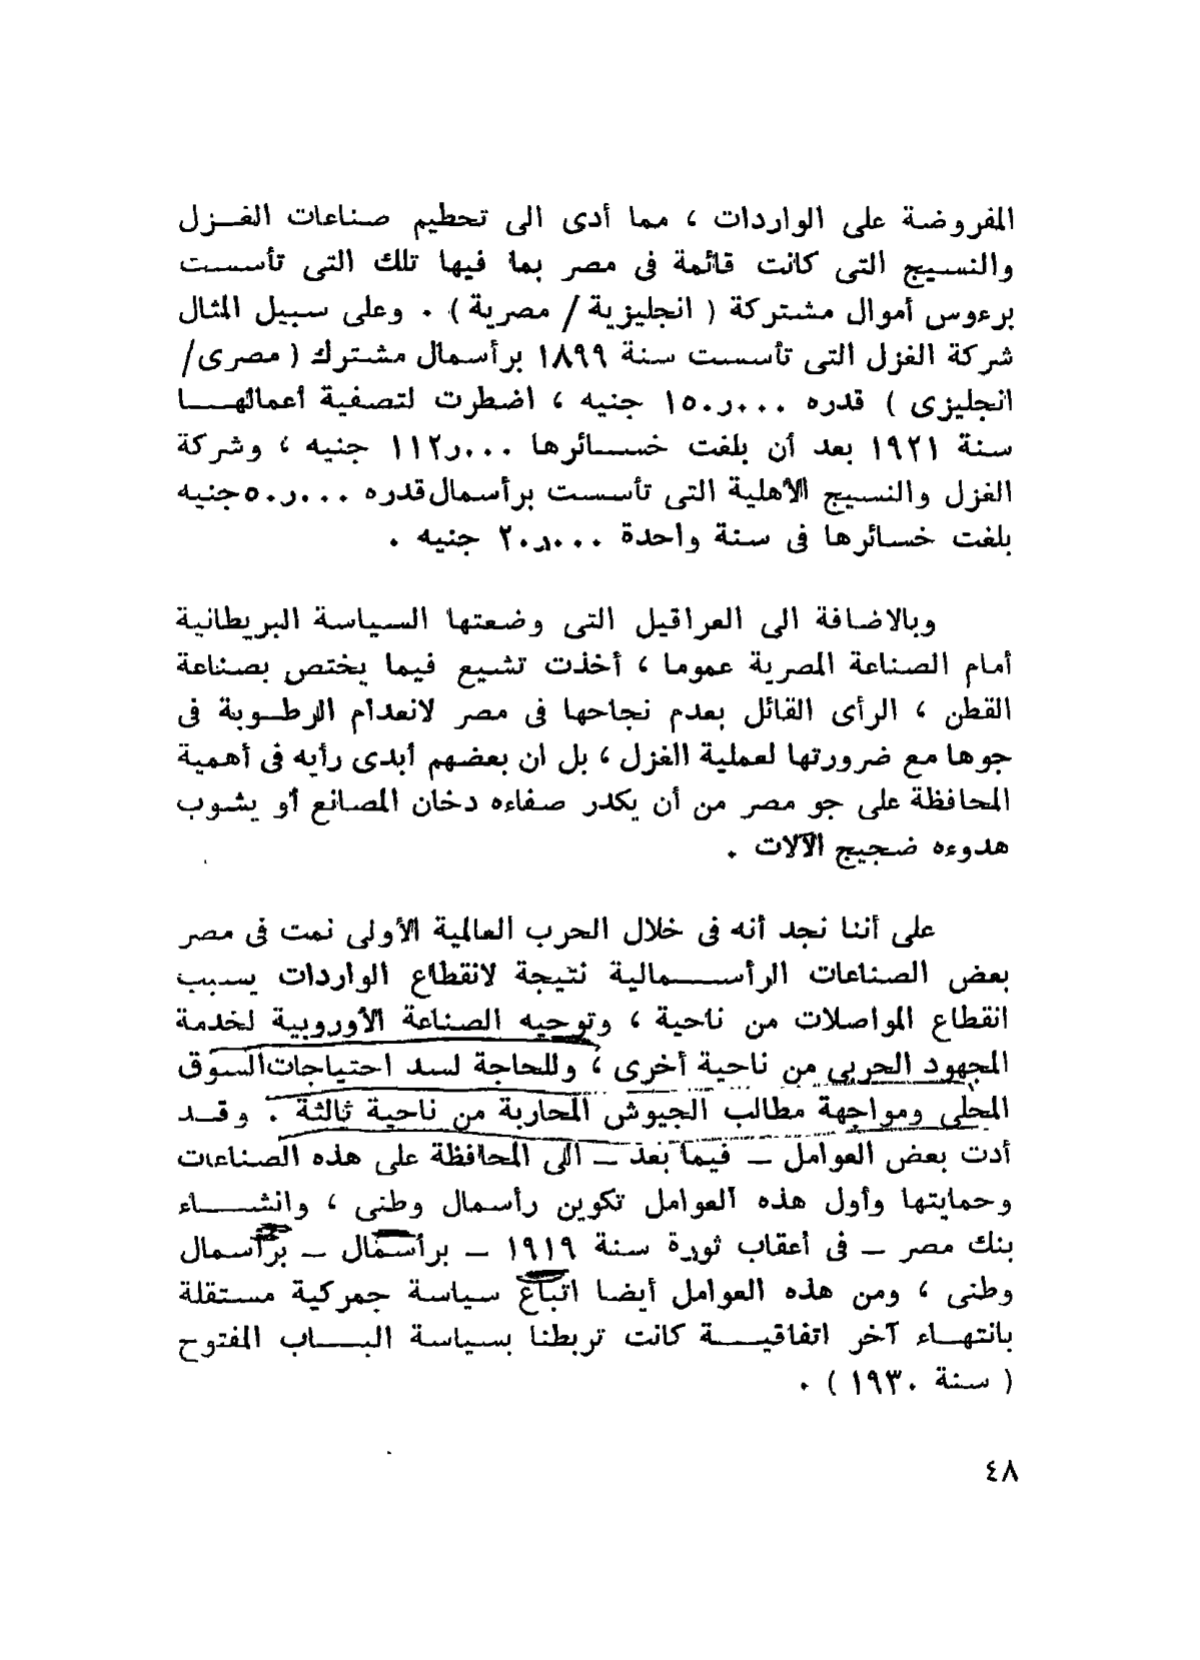 المفروضة على الواردات ، مما أدى الى تحطيم صناعات الغــزل
والنسيج التى كانت قائمة فى مصر بما فيها تلك التى تأسست
برءوس أموال مشتركة ( انجليزية / مصرية ) . وعلى سبيل المثال
شركة الغزل التى تأسست سنة ١٨٩٩ برأسمال مشترك ( مصرى/
انجليزى ) قدره ١٥٠ر٠٠٠ جنيه ، اضطرت لتصفية أعمالهـــا
سنة ١٩٢١ بعد أن بلغت خســـائرها ١١٢ر٠٠٠ جنيه ، وشركة
الغزل والنسيج الأهلية التى تأسست برأسمال قدره ٥٠ر٠٠٠ جنيه
بلغت خسائرها فى سنة واحدة ٢٠ر٠٠٠ جنيه .
وبالاضافة الى العراقيل التى وضعتها السياسة البريطانية
أمام الصناعة المصرية عموما ، أخذت تشيع فيما يختص بصناعة
القطن ، الرأى القائل بعدم نجاحها فى مصر لانعدام الرطــوبة فى
جوها مع ضرورتها لعملية الغزل ، بل ان بعضهم أبدى رأيه فى أهمية
المحافظة على جو مصر من أن يكدر صفاءه دخان المصانع أو يشوب
هدوءه ضجيج الآلات .
على أننا نجد أنه فى خلال الحرب العالمية الأولى نمت فى مصر
بعض الصناعات الرأســـمالية نتيجة لانقطاع الواردات بسبب
انقطاع المواصلات من ناحية ، وتوجيه الصناعة الأوروبية لخدمة
المجهود الحربى من ناحية أخرى ، وللحاجة لسد احتياجات السوق
المحلى ومواجهة مطالب الجيوش المحاربة من ناحية ثالثة . وقــد
أدت بعض العوامل ــ فيما بعد ــ الى المحافظة على هذه الصناعات
وحمايتها وأول هذه العوامل تكوين رأسمال وطنى ، وانشـــاء
بنك مصر ــ فى أعقاب ثورة سنة ١٩١٩ ــ برأسمال ــ برأسمال
وطنى ، ومن هذه العوامل أيضا اتباع سياسة جمركية مستقلة
بانتهــاء آخر اتفاقيـــة كانت تربطنا بسياسة البـــاب المفتوح
( سنة ١٩٣٠ ) .
٤٨